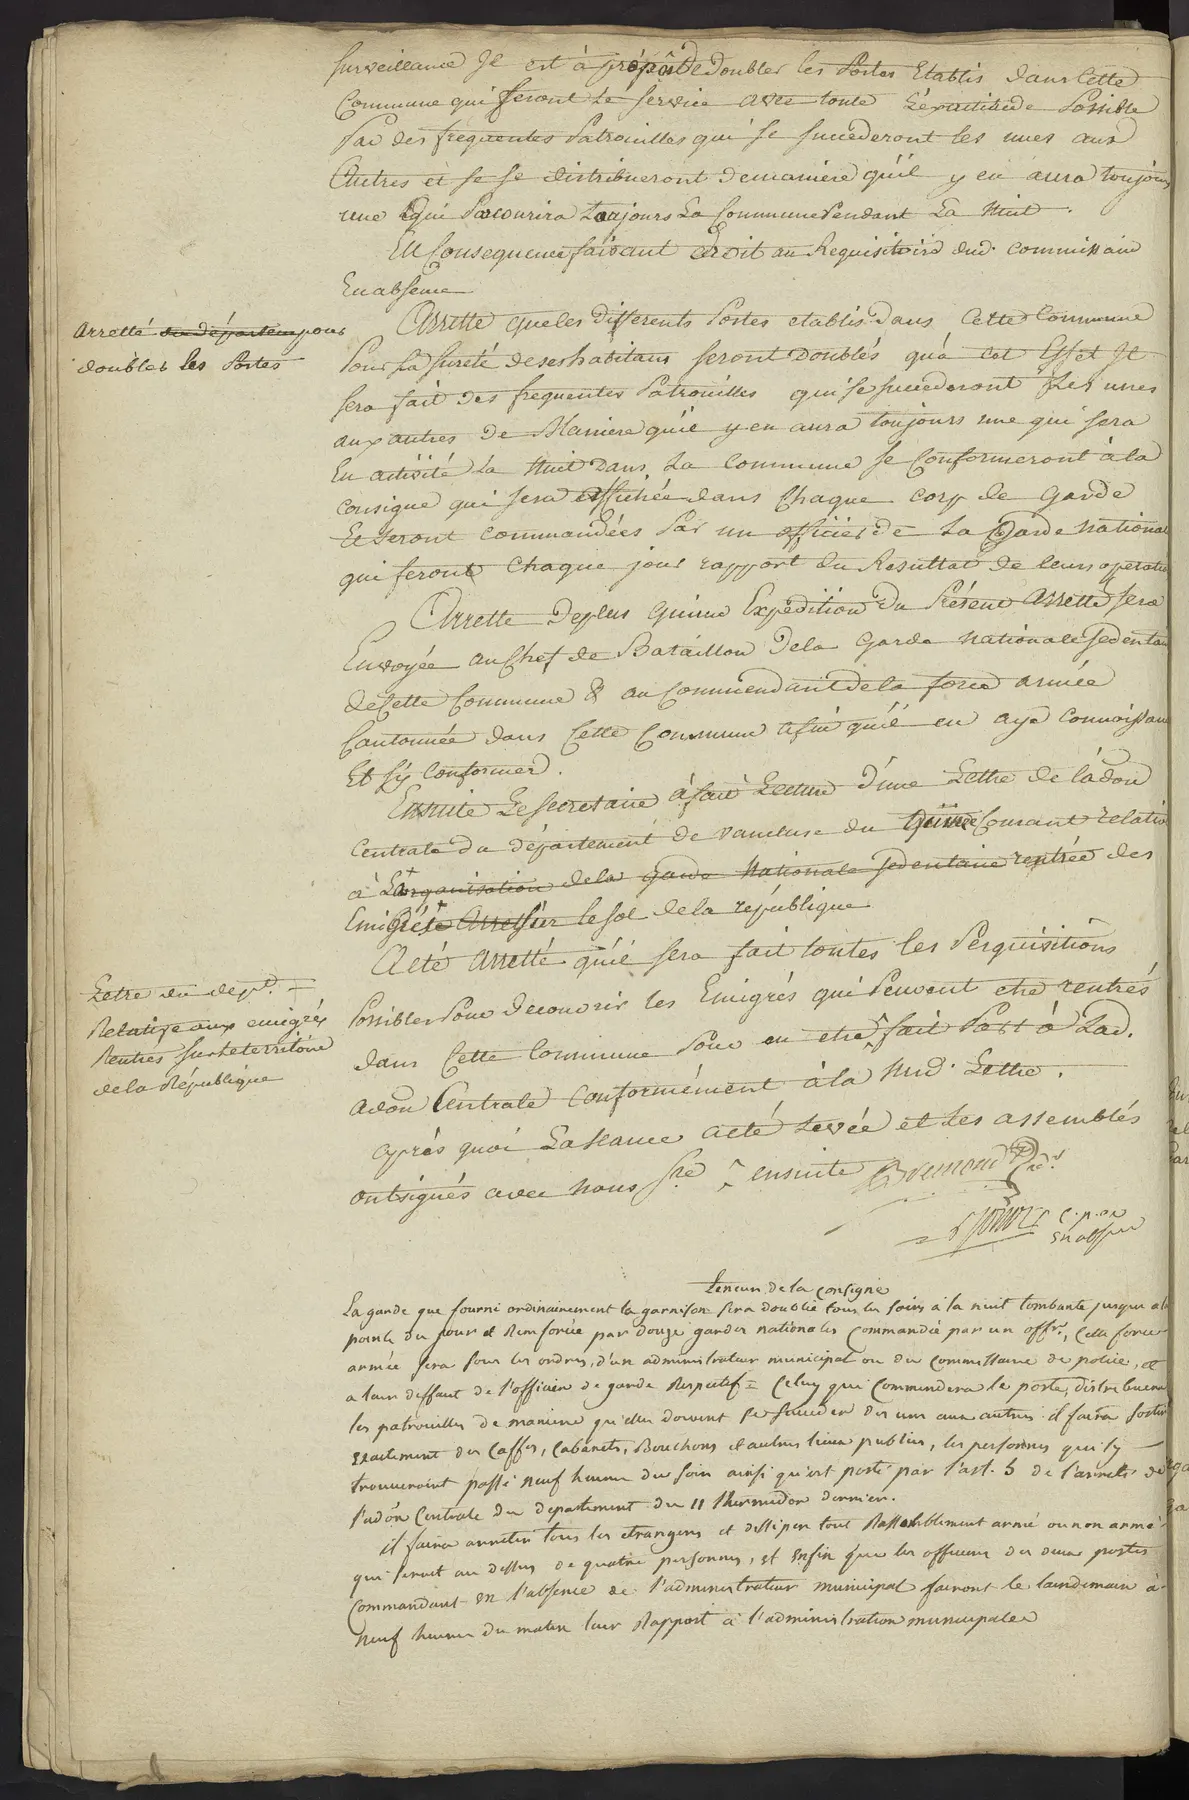 surveillance Il est à propôs De Doubler les Postes Etablis dans Cette
Commune qui feront le service avec toute L'exactitude Possible
Par des frequentes Patrouilles qui se succederont les unes aux
Autres et se distribueront demaniere qu'il y en aura toujours
une qui Parcourira toujours La Commune Pendant La Nuit.
En Consequence faisant droit au Requisitoire dud. commissaire
En absence
Arretté du départem pour
doubler les Postes
Arrette que les differents Postes etablis dans Cette Commune
Pour La sureté de ses habitans seront Doublés qu'a cet Effet Il
sera fait des frequentes Patrouilles qui se succederont Les unes
aux autres de Maniere qu'il y en aura toujours une qui sera
En activité La Nuit Dans La Commune se Conformeront à la
consigne qui sera affichée dans Chaque corp de Garde
Et seront commandées Par un officier de La Garde National
qui feront Chaque jour rapport du Resultat de leurs operatio
Arrette Deplus qu'une Expédition Du Présent Arretté sera
Envoyée au Chef de Bataillon Dela Garde Nationale sedentai
de Cette Commune & au Commendant de la force armée
Cantonnée dans Cette Commune afin qu'il en aye connoissan
Et s'y Conformer.
Ensuite Le secretaire à fait Lecture d'une Lettre de l'adon
Centrale du département de vaucluse du Courant relativ
à La organisation dela garde Nationale sedentaire rentrée des
Emigrés sur le sol de la république
Lettre du dept. =
Relative aux emigrés
Rentres sur le territoire
de la République
A eté Arretté qu'il sera fait toutes les Perquisitions
Possibles Pour Decouvrir les Emigrés qui Peuvent etre rentrés
dans Cette Commune Pour en etre fait Part à Lad.
adon Centrale Conformément à la Susd. Lettre.
après quoi La séance a eté Levée et Les assemblés
ont signés avec nous sre ensuite Bremond Pred.t
C. p. on
En absence
Teneur de la Consigne
La garde que fourni ordinairement la garnison sera doublée tous les soirs à la nuit tombante jusque a la
pointe du jour et Renforcée par douze gardes nationales commandée par un offr., cette force
armée sera sous les ordres, d'un administrateur municipal ou du Commissaire de police, et
a leur deffaut de l'officier de garde Respectif = Celuy qui Commendera le poste, distribuera
les patrouilles de maniere qu'elles doivent se succeder les unes aux autres il faira sortir
exactement des Caffes, Cabarets, Bouchons et autres lieux publics, les personnes qui s'y
trouveroint passé neuf heures du soir ainsi qu'est porté par l'art. 5 de l'arrêté de
l'adon Centrale du departement du 11 thermidor dernier.
il faira arreter tous les etrangers et dissiper tout Rassemblement armé ou non armé
qui seroit au dessus de quatre personnes, et enfin que les officiers des deux postes
Commandant en l'absence de l'administrateur municipal fairont le landemain à
neuf heures du matin leur Rapport à l'administration municipale